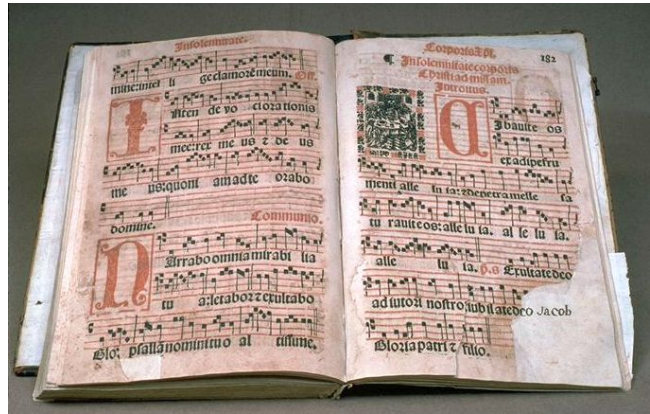 In solemnitate.
mine: intel li ge clamorẽ meum. Off.
Inten de vo ci orationis
mee: rex me us ⁊ de us
me us: quoni am ad te orabo
domine. Communio.
Narrabo omnia mirabi lia
tu a: letabor ⁊ exultabo
psallã nomini tuo al tissime.
Corporis Xpi. 182
¶ In solemnitate corporis
Christi ad missam.
Introitus.
Cibavit e os
ex adipe fru
menti alle lu ia: ⁊ de petra melle sa
tu ravit e os: alle lu ia. al le lu ia.
alle lu ia. p̃s Exultate deo
adiutori nostro: iubilate deo Jacob
Gloria patri ⁊ filio.